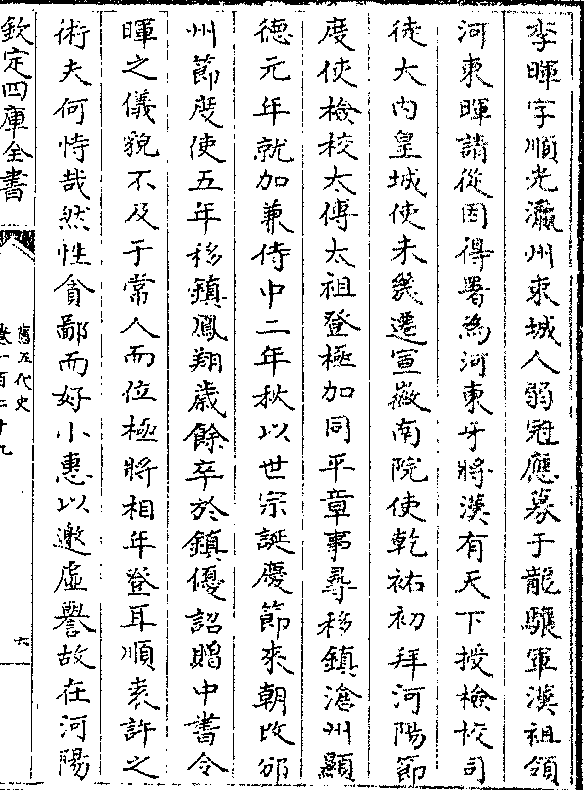 李暉字順光瀛州束城人弱冠應募于龍驤軍漢祖領
河東暉請從因得署為河東牙將漢有天下授檢校司
徒大内皇城使未幾遷宣徽南院使乾祐初拜河陽節
度使檢校太傅太祖登極加同平章事尋移鎮滄州顯
德元年就加兼侍中二年秋以世宗誕慶節來朝改邠
州節度使五年移鎮鳳翔歲餘卒於鎮優詔贈中書令
暉之儀貌不及于常人而位極將相年登耳順袁許之
術夫何恃哉然性貪鄙而好小惠以邀虛譽故在河陽
欽定四庫全書
舊五代史
卷一百二十九
六